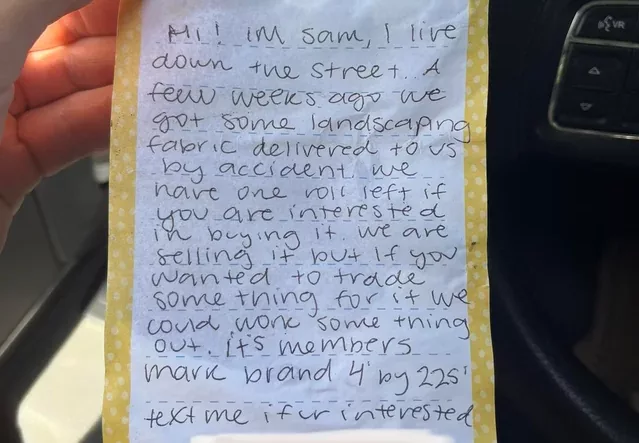 Hi! im sam, I live
down the street... A
few weeks ago we
got some landscaping
fabric delivered to us
by accident. we
have one roll left if
you are interested
in buying it. we are
selling it but if you
wanted to trade
something for it we
could work something
out. it's members
mark brand 4' by 225'
text me if ur interested
VR